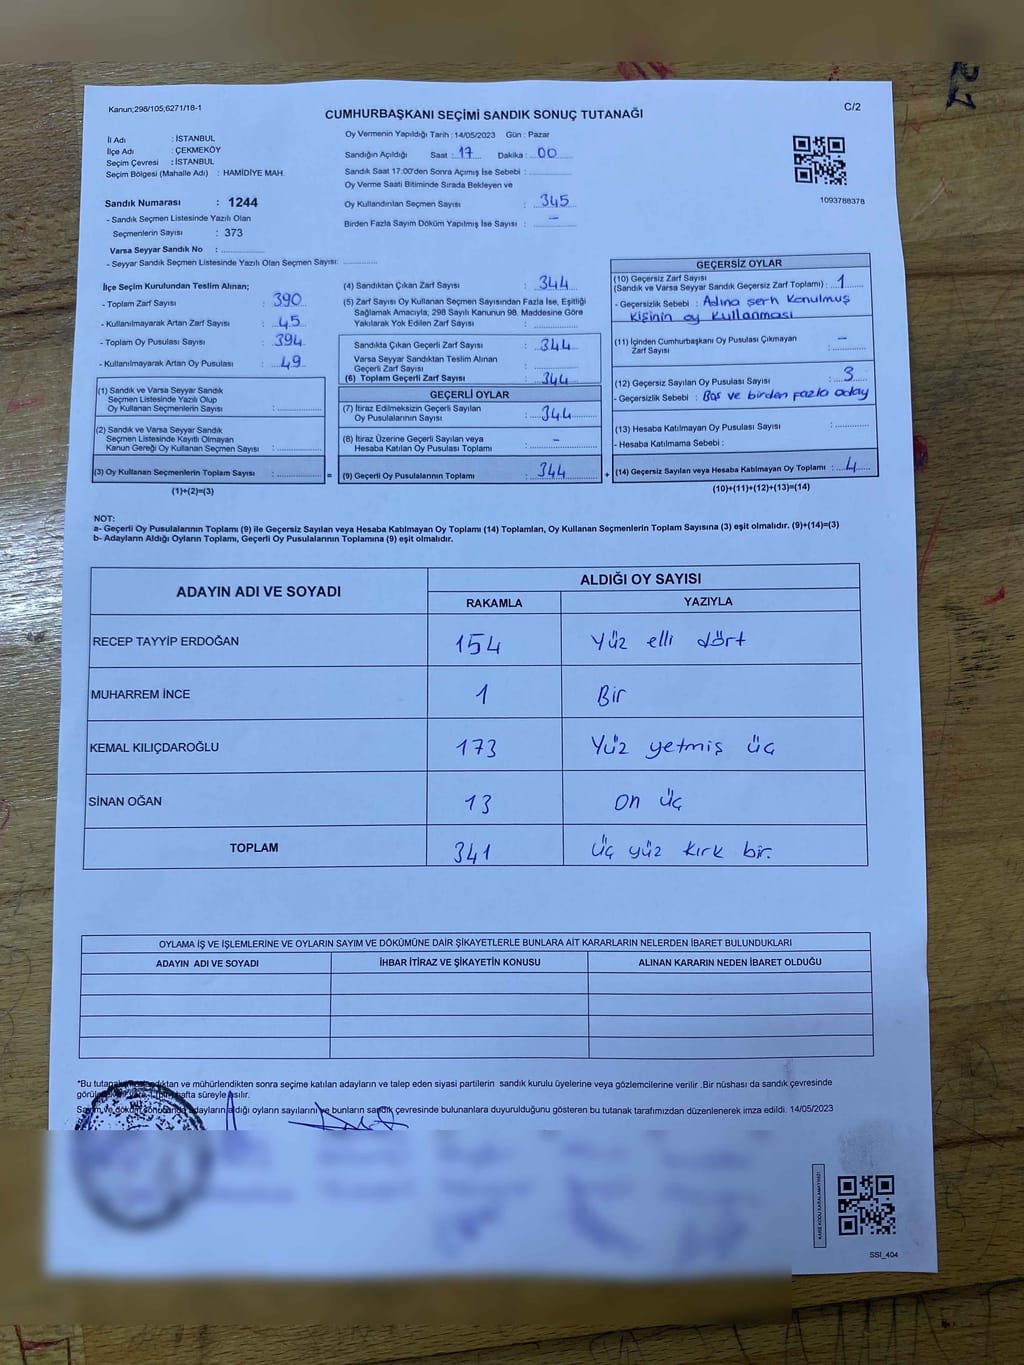 Kanun;298/105;6271/18-1
C/2
CUMHURBAŞKANI SEÇİMİ SANDIK SONUÇ TUTANAĞI
İl Adı : İSTANBUL
İlçe Adı : ÇEKMEKÖY
Seçim Çevresi : İSTANBUL
Seçim Bölgesi (Mahalle Adı) : HAMİDİYE MAH.
Sandık Numarası : 1244
- Sandık Seçmen Listesinde Yazılı Olan
Seçmenlerin Sayısı : 373
Varsa Seyyar Sandık No : ..............
- Seyyar Sandık Seçmen Listesinde Yazılı Olan Seçmen Sayısı: ............
Oy Vermenin Yapıldığı Tarih : 14/05/2023 Gün : Pazar
Sandığın Açıldığı Saat : 17 Dakika : 00
Sandık Saat 17:00'den Sonra Açımış İse Sebebi : ..............
Oy Verme Saati Bitiminde Sırada Bekleyen ve
Oy Kullandırılan Seçmen Sayısı : 345
Birden Fazla Sayım Döküm Yapılmış İse Sayısı : –
1093788378
İlçe Seçim Kurulundan Teslim Alınan;
- Toplam Zarf Sayısı : 390
- Kullanılmayarak Artan Zarf Sayısı : 45
- Toplam Oy Pusulası Sayısı : 394
- Kullanılmayarak Artan Oy Pusulası : 49
(1) Sandık ve Varsa Seyyar Sandık
Seçmen Listesinde Yazılı Olup
Oy Kullanan Seçmenlerin Sayısı : ..............
(2) Sandık ve Varsa Seyyar Sandık
Seçmen Listesinde Kayıtlı Olmayan
Kanun Gereği Oy Kullanan Seçmen Sayısı : ..............
(3) Oy Kullanan Seçmenlerin Toplam Sayısı : .............. =
(1)+(2)=(3)
(4) Sandıktan Çıkan Zarf Sayısı : 344
(5) Zarf Sayısı Oy Kullanan Seçmen Sayısından Fazla İse, Eşitliği
Sağlamak Amacıyla; 298 Sayılı Kanunun 98. Maddesine Göre
Yakılarak Yok Edilen Zarf Sayısı : ..............
Sandıkta Çıkan Geçerli Zarf Sayısı : 344
Varsa Seyyar Sandıktan Teslim Alınan
Geçerli Zarf Sayısı : ..............
(6) Toplam Geçerli Zarf Sayısı : 344
GEÇERLİ OYLAR
(7) İtiraz Edilmeksizin Geçerli Sayılan
Oy Pusulalarının Sayısı : 344
(8) İtiraz Üzerine Geçerli Sayılan veya
Hesaba Katılan Oy Pusulası Toplamı : –
(9) Geçerli Oy Pusulalarının Toplamı : 344 +
GEÇERSİZ OYLAR
(10) Geçersiz Zarf Sayısı
(Sandık ve Varsa Seyyar Sandık Geçersiz Zarf Toplamı) : 1
- Geçersizlik Sebebi : Adına şerh konulmuş
kişinin oy kullanması
(11) İçinden Cumhurbaşkanı Oy Pusulası Çıkmayan
Zarf Sayısı : –
(12) Geçersiz Sayılan Oy Pusulası Sayısı : 3
- Geçersizlik Sebebi : Boş ve birden fazla aday
(13) Hesaba Katılmayan Oy Pusulası Sayısı : ..............
- Hesaba Katılmama Sebebi :
(14) Geçersiz Sayılan veya Hesaba Katılmayan Oy Toplamı : 4
(10)+(11)+(12)+(13)=(14)
NOT:
a- Geçerli Oy Pusulalarının Toplamı (9) ile Geçersiz Sayılan veya Hesaba Katılmayan Oy Toplamı (14) Toplamları, Oy Kullanan Seçmenlerin Toplam Sayısına (3) eşit olmalıdır. (9)+(14)=(3)
b- Adayların Aldığı Oyların Toplamı, Geçerli Oy Pusulalarının Toplamına (9) eşit olmalıdır.
ADAYIN ADI VE SOYADI ALDIĞI OY SAYISI
RAKAMLA YAZIYLA
RECEP TAYYİP ERDOĞAN 154 Yüz elli dört
MUHARREM İNCE 1 Bir
KEMAL KILIÇDAROĞLU 173 Yüz yetmiş üç
SİNAN OĞAN 13 on üç
TOPLAM 341 üç yüz kırk bir.
OYLAMA İŞ VE İŞLEMLERİNE VE OYLARIN SAYIM VE DÖKÜMÜNE DAİR ŞİKAYETLERLE BUNLARA AİT KARARLARIN NELERDEN İBARET BULUNDUKLARI
ADAYIN ADI VE SOYADI İHBAR İTİRAZ VE ŞİKAYETİN KONUSU ALINAN KARARIN NEDEN İBARET OLDUĞU
*Bu ve mühürlendikten sonra seçime katılan adayların ve talep eden siyasi partilerin sandık kurulu üyelerine veya gözlemcilerine verilir .Bir nüshası da sandık çevresinde
hafta süreyle asılır.
adayların aldığı oyların sayılarını ve bunların sandık çevresinde bulunanlara duyurulduğunu gösteren bu tutanak tarafımızdan düzenlenerek imza edildi. 14/05/2023
SSİ_404